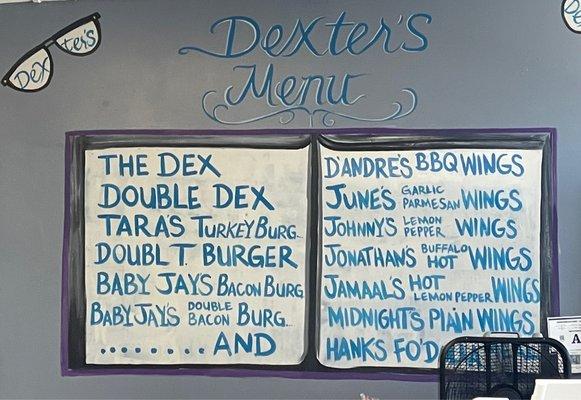 DEXTER'S
DEXTER'S
MENU
THE DEX
DOUBLE DEX
TARA'S TURKEY BURG...
DOUBL T. BURGER
BABY JAY'S BACON BURG
BABY JAY'S DOUBLE BACON BURG...
......... AND
D'ANDRE'S BBQ WINGS
JUNE'S GARLIC PARMESAN WINGS
JOHNNY'S LEMON PEPPER WINGS
JONATHAN'S BUFFALO HOT WINGS
JAMAAL'S HOT LEMON PEPPER WINGS
MIDNIGHT'S PLAIN WINGS
HANKS FO'D